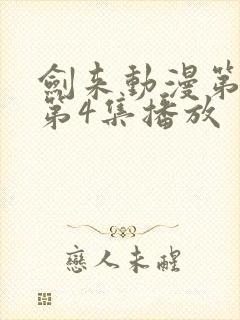 劍来動漫第
第4集播放
戀人未醒